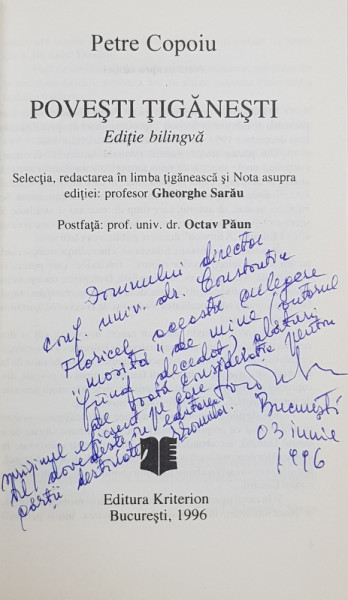 Petre Copoiu
POVEȘTI ȚIGĂNEȘTI
Ediție bilingvă
Selecția, redactarea în limba țigănească și Nota asupra
ediției: profesor Gheorghe Sarău
Postfață: prof. univ. dr. Octav Păun
Domnului director
conf. univ. dr. Constantin
Floricel, această culegere
"moșită" de mine (autorul
fiind decedat), alături
de toată considerația pentru
sprijinul eficient pe care
îl dovedește în editarea
cărții destinate rromilor.
București
03 iunie
1996
Editura Kriterion
București, 1996